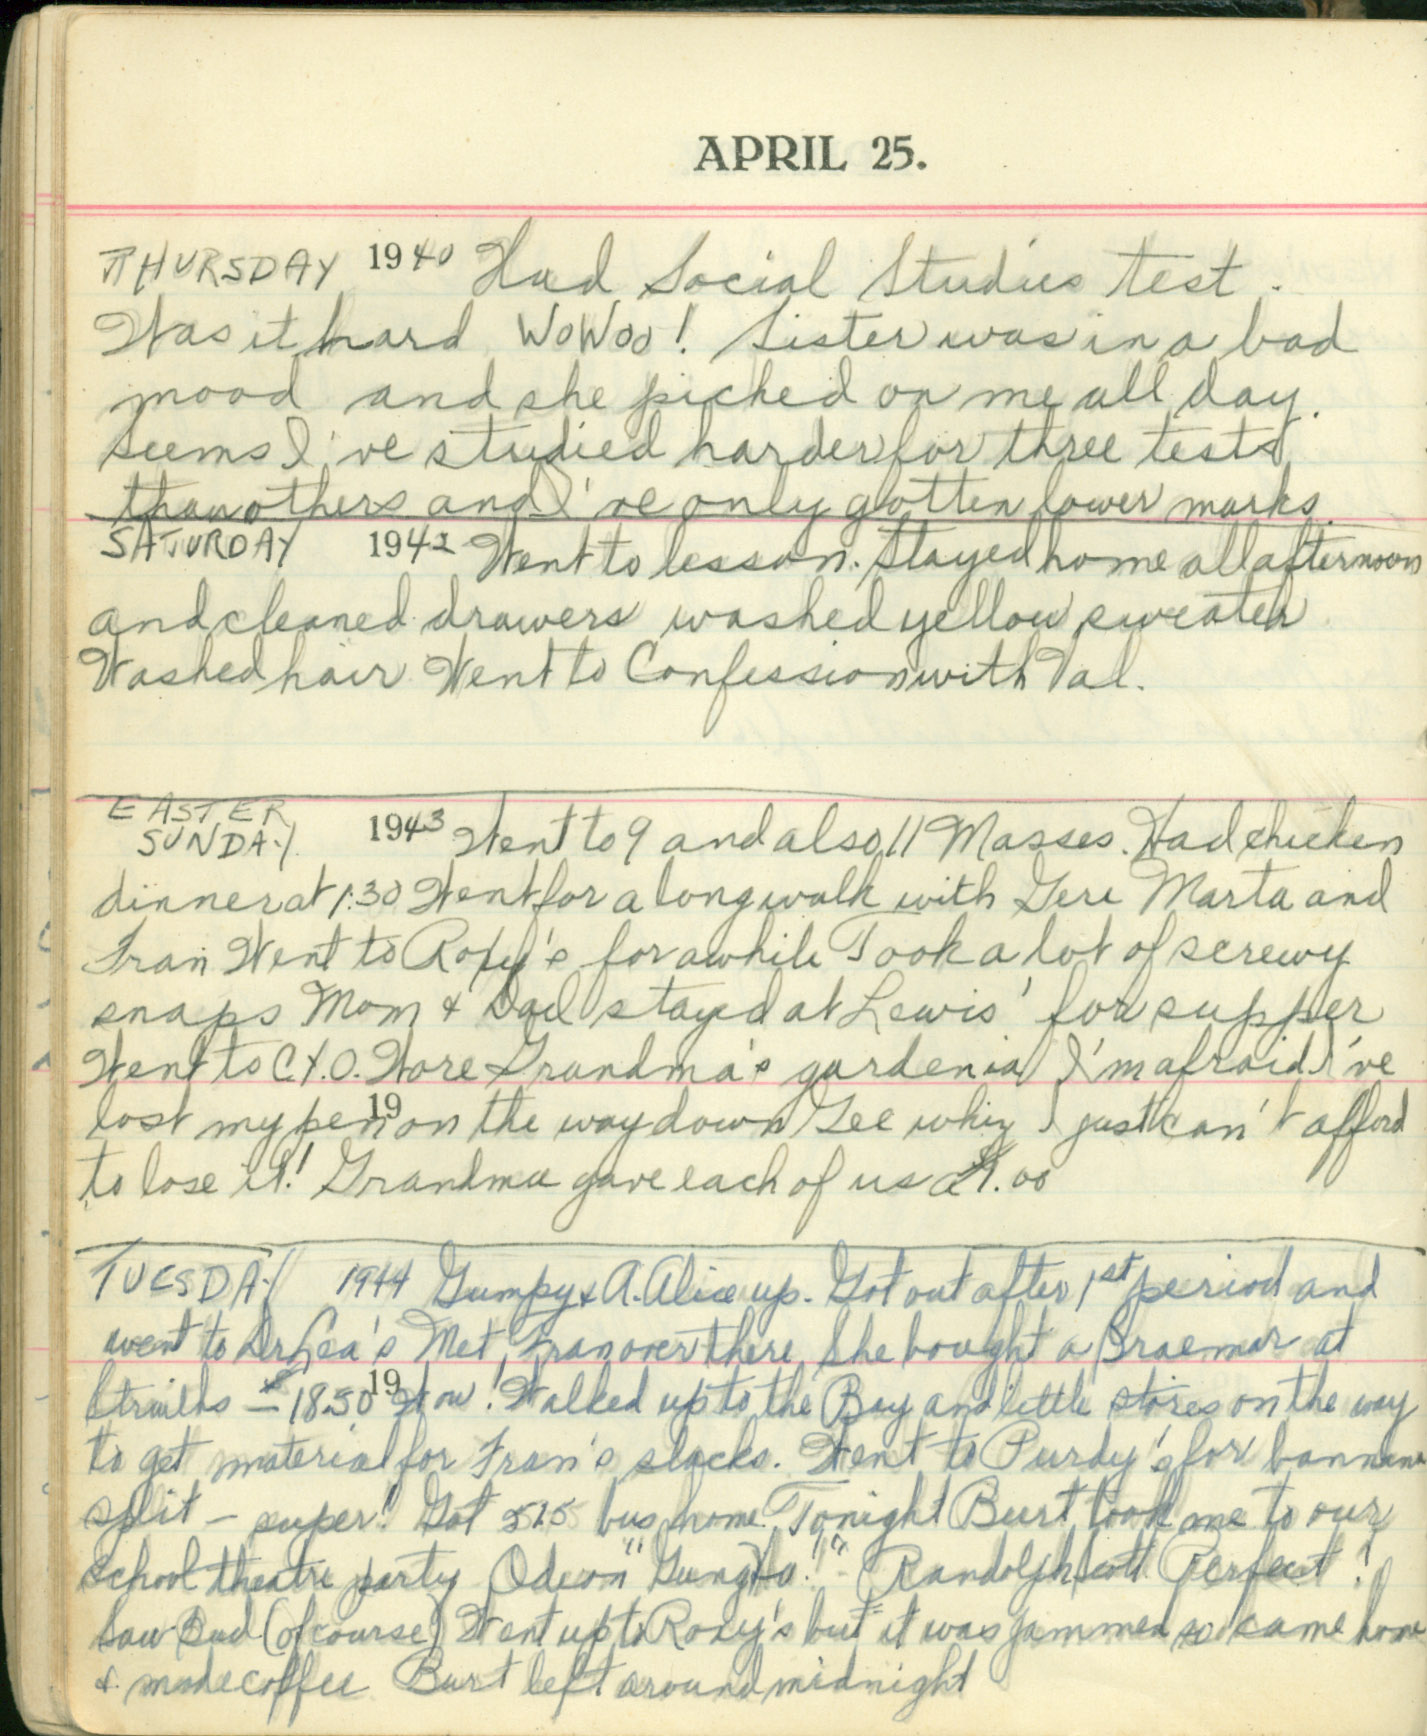 APRIL 25.
THURSDAY 1940 Had Social Studies test.
Was it hard WoWoo! Sister was in a bad
mood and she picked on me all day.
Seems I've studied harder for three tests
than others and I've only gotten lower marks.
SATURDAY 1942 Went to lesson. Stayed home all afternoon
and cleaned drawers washed yellow sweater
Washed hair Went to Confession with Val.
EASTER
SUNDAY 1943 Went to 9 and also 11 Masses. Had chicken
dinner at 1:30 Went for a long walk with Geri Marta and
Fran Went to Roxy's for awhile Took a lot of screwy
snaps Mom & Dad stayed at Lewis' for supper
Went to C.Y.O. Wore Grandma's gardenia I'm afraid I've
19
lost my pen on the way down Gee whiz I just can't afford
to lose it! Grandma gave each of us a $1.00
TUESDAY 1944 Gumpy & A. Alice up. Got out after 1st period and
went to Dr Lea's Met Fran over there She bought a Braemar at
19
— 18.50 Wow! Walked up to the Bay and little stores on the way
to get material for Fran's slacks. Went to Purdy's for bannana
split — super! Got 515 bus home. Tonight Burt took me to our
school theatre party Odeon "Gung Ho!" Randolph Scott Perfect!
Saw Bud (of course) Went up to Roxy's but it was jammed so came home
& made coffee Burt left around midnight